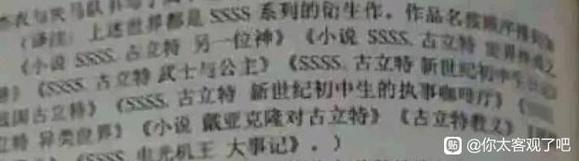 衣衣与失马队
(译注：上述世界都是 SSSS 系列的衍生作。作品名按顺序排列
《小说 SSSS. 古立特 另一位神》《小说 SSSS. 古立特
《SSSS. 古立特 武士与公主》《SSSS. 古立特 新世纪初中生日记
战国古立特》《SSSS. 古立特 新世纪初中生的执事咖啡厅》《
立特 异类世界》《小说 戴亚克隆对古立特》《古立特教义》
SSSS. 电光机王 大事记》。)
贴 @你太客观了吧